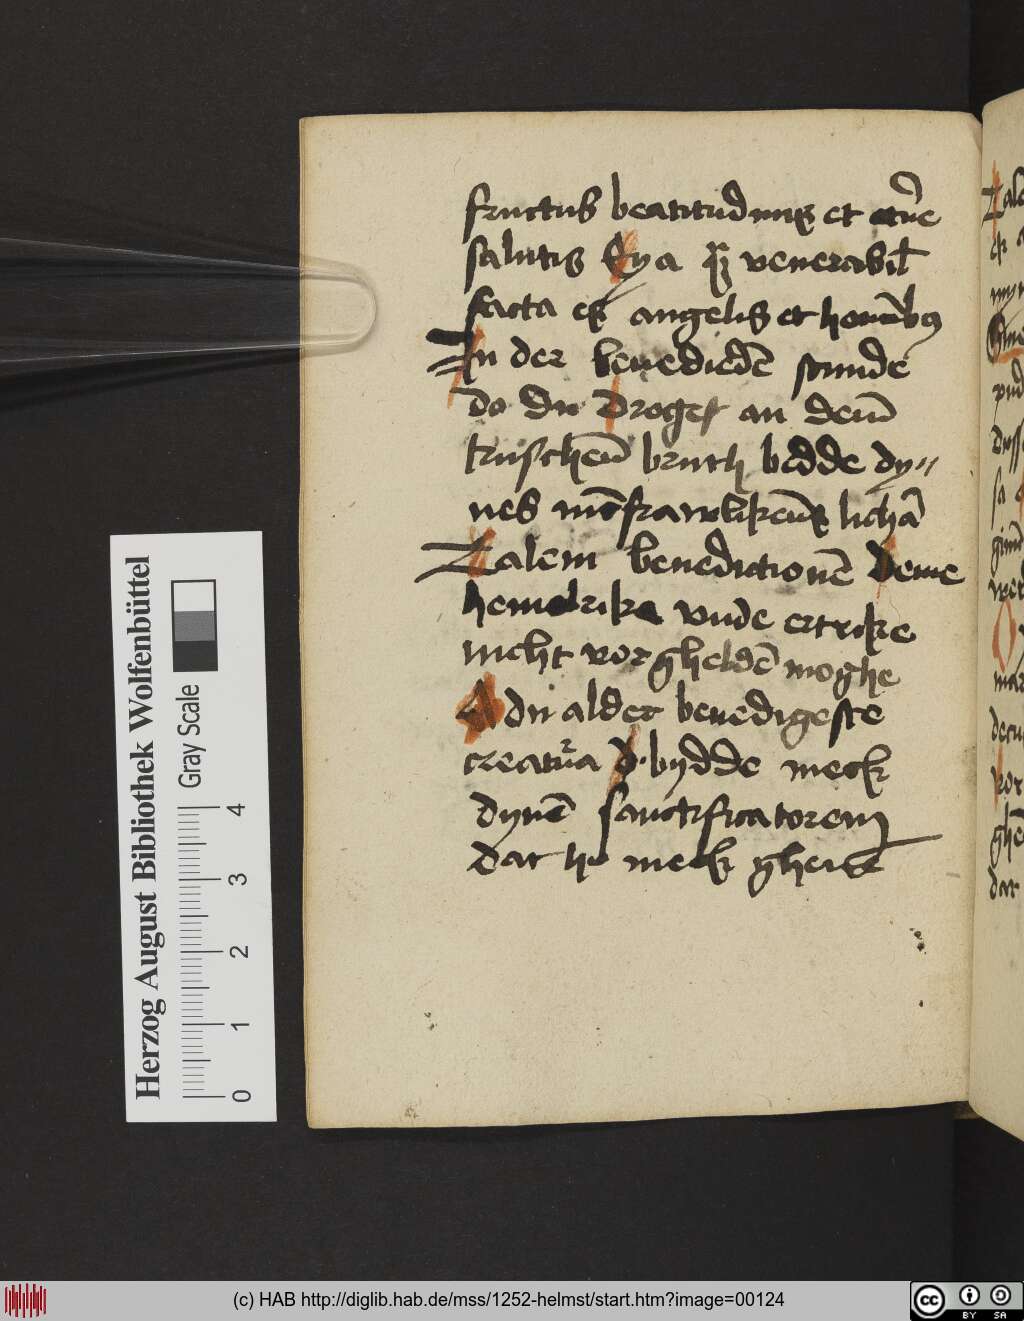 fructus beatitudinis et etn̄e
salutis Eya q̄ venerabil̄
facta es angelis et homībꝰ
In der benediedē stunde
do du droges an dem̄
kuschem̄ bruth bidde dy„
nes mē frawlikem̄s lichā
Talem benedictionē deme
hemelrike vnde ertrike
nicht vorgheldē moghe
A du alder benedigeste
creatura d bydde meck
dynē sanctificatorem
dat he meck ghene
Herzog August Bibliothek Wolfenbüttel
Gray Scale
0 1 2 3 4
(c) HAB http://diglib.hab.de/mss/1252-helmst/start.htm?image=00124
cc BY SA